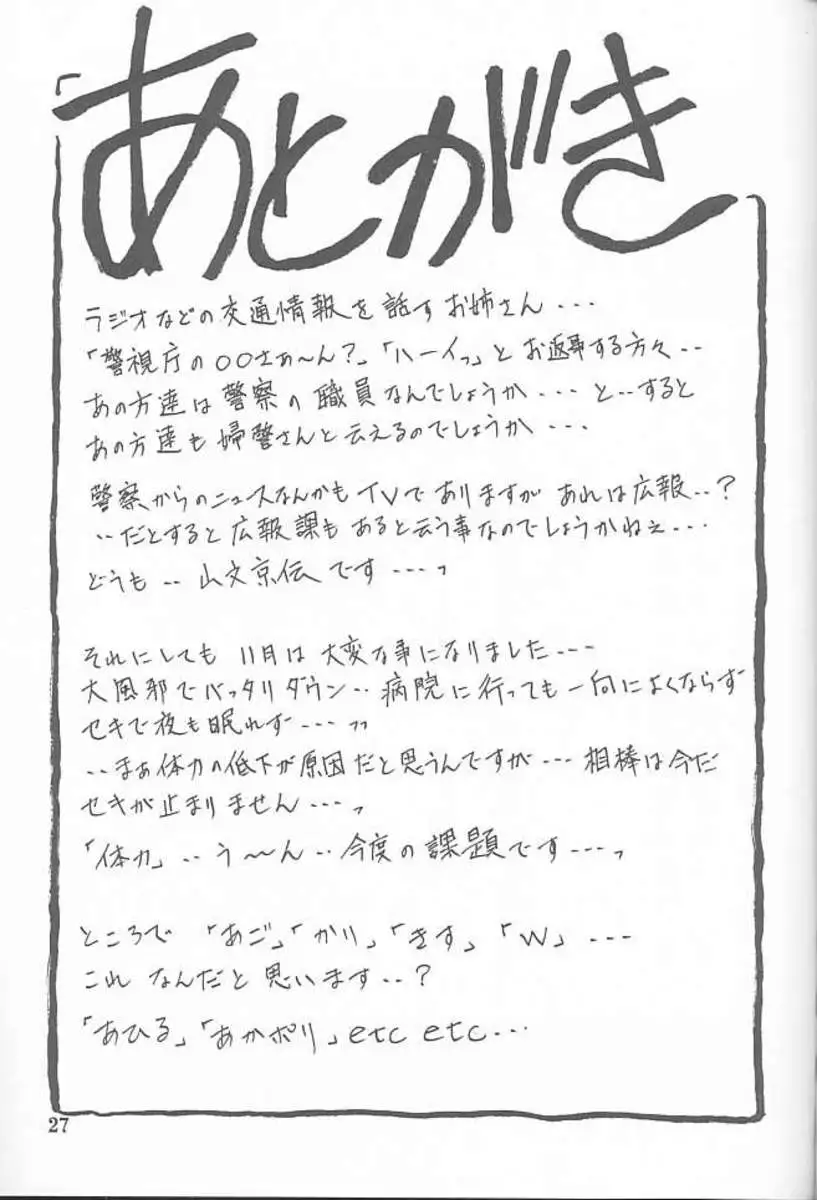 あとがき
ラジオなどの交通情報を話すお姉さん・・・
「警視庁の○○さぁ～ん？」「ハーイっ」とお返事する方々・・
あの方達は警察の職員なんでしょうか・・・と・・すると
あの方達も婦警さんと云えるのでしょうか・・・
警察からのニュースなんかもTVでありますがあれは広報・・？
・・だとすると広報課もあると云う事なのでしょうかねぇ・・・
どうも・・山文京伝です・・・っ
それにしても11月は大変な事になりました・・・
大風邪でバッタリダウン・・病院に行っても一向によくならず
セキで夜も眠れず・・・っっ
・・まぁ体力の低下が原因だと思うんですが・・・相棒は今だ
セキが止まりません・・・っ
「体力」・・う～ん・・今度の課題です・・・っ
ところで「あご」「かり」「きす」「W」・・・
これなんだと思います・・？
「あひる」「あかポリ」etc etc・・・
27